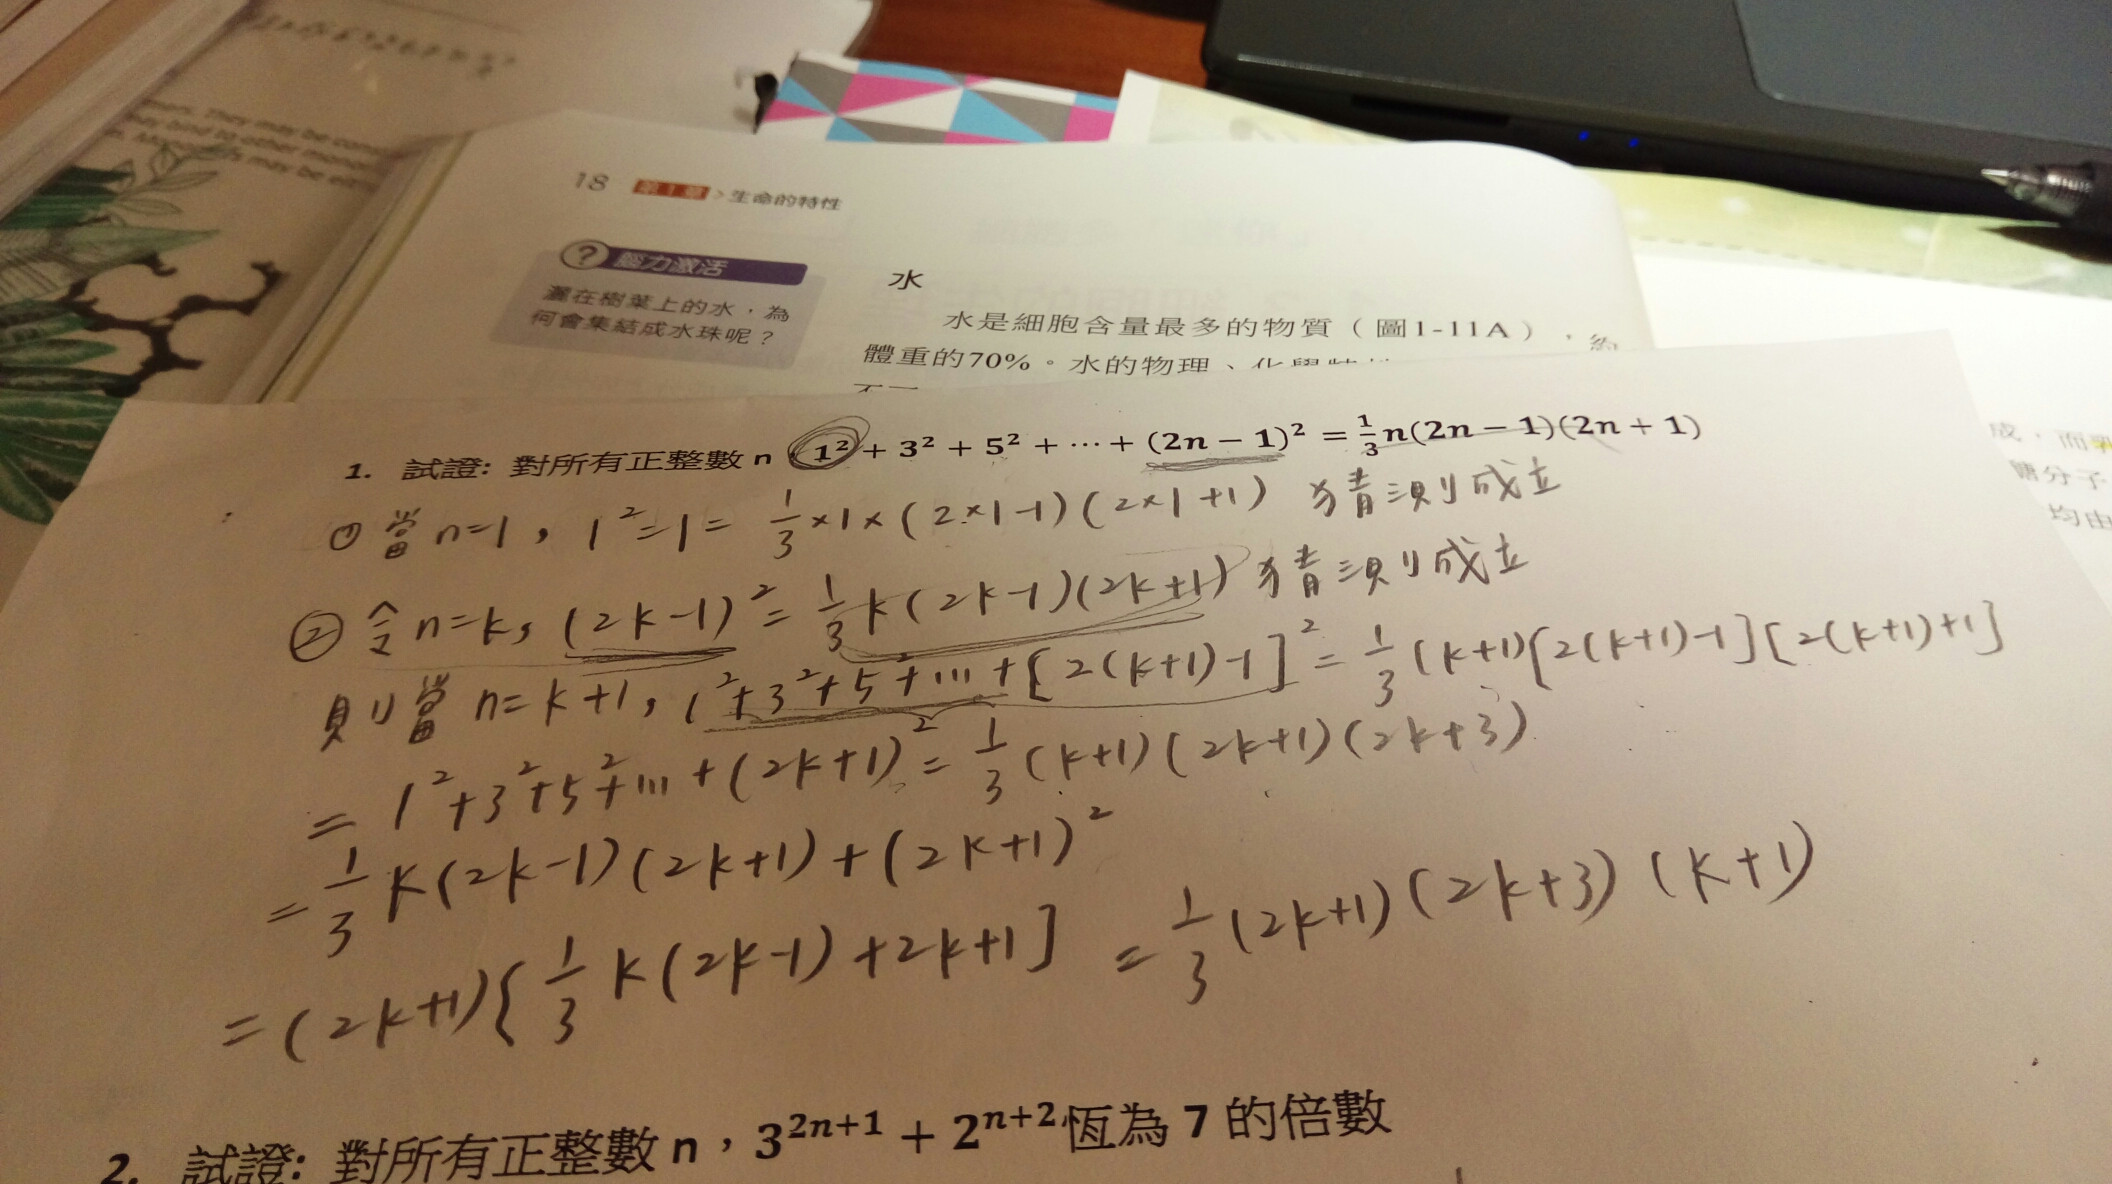 18 第1章 > 生命的特性
? 腦力激活
灑在樹葉上的水，為
何會集結成水珠呢？
水
水是細胞含量最多的物質（圖1-11A），約
體重的70%。水的物理、化學
成，而
糖分子
均由
1. 試證: 對所有正整數 n，1² + 3² + 5² + ⋯ + (2n − 1)² = 1/3 n(2n − 1)(2n + 1)
① 當 n=1, 1²=1= 1/3 ×1×(2×1-1)(2×1+1) 猜測成立
② 令 n=k, (2k-1)² = 1/3 k(2k-1)(2k+1) 猜測成立
則當 n=k+1, 1²+3²+5²+...+[2(k+1)-1]² = 1/3 (k+1)[2(k+1)-1][2(k+1)+1]
= 1²+3²+5²+...+(2k+1)² = 1/3 (k+1)(2k+1)(2k+3)
= 1/3 k(2k-1)(2k+1)+(2k+1)²
= (2k+1){1/3 k(2k-1)+2k+1] = 1/3 (2k+1)(2k+3)(k+1)
2. 試證: 對所有正整數 n，3²ⁿ⁺¹ + 2ⁿ⁺² 恆為 7 的倍數